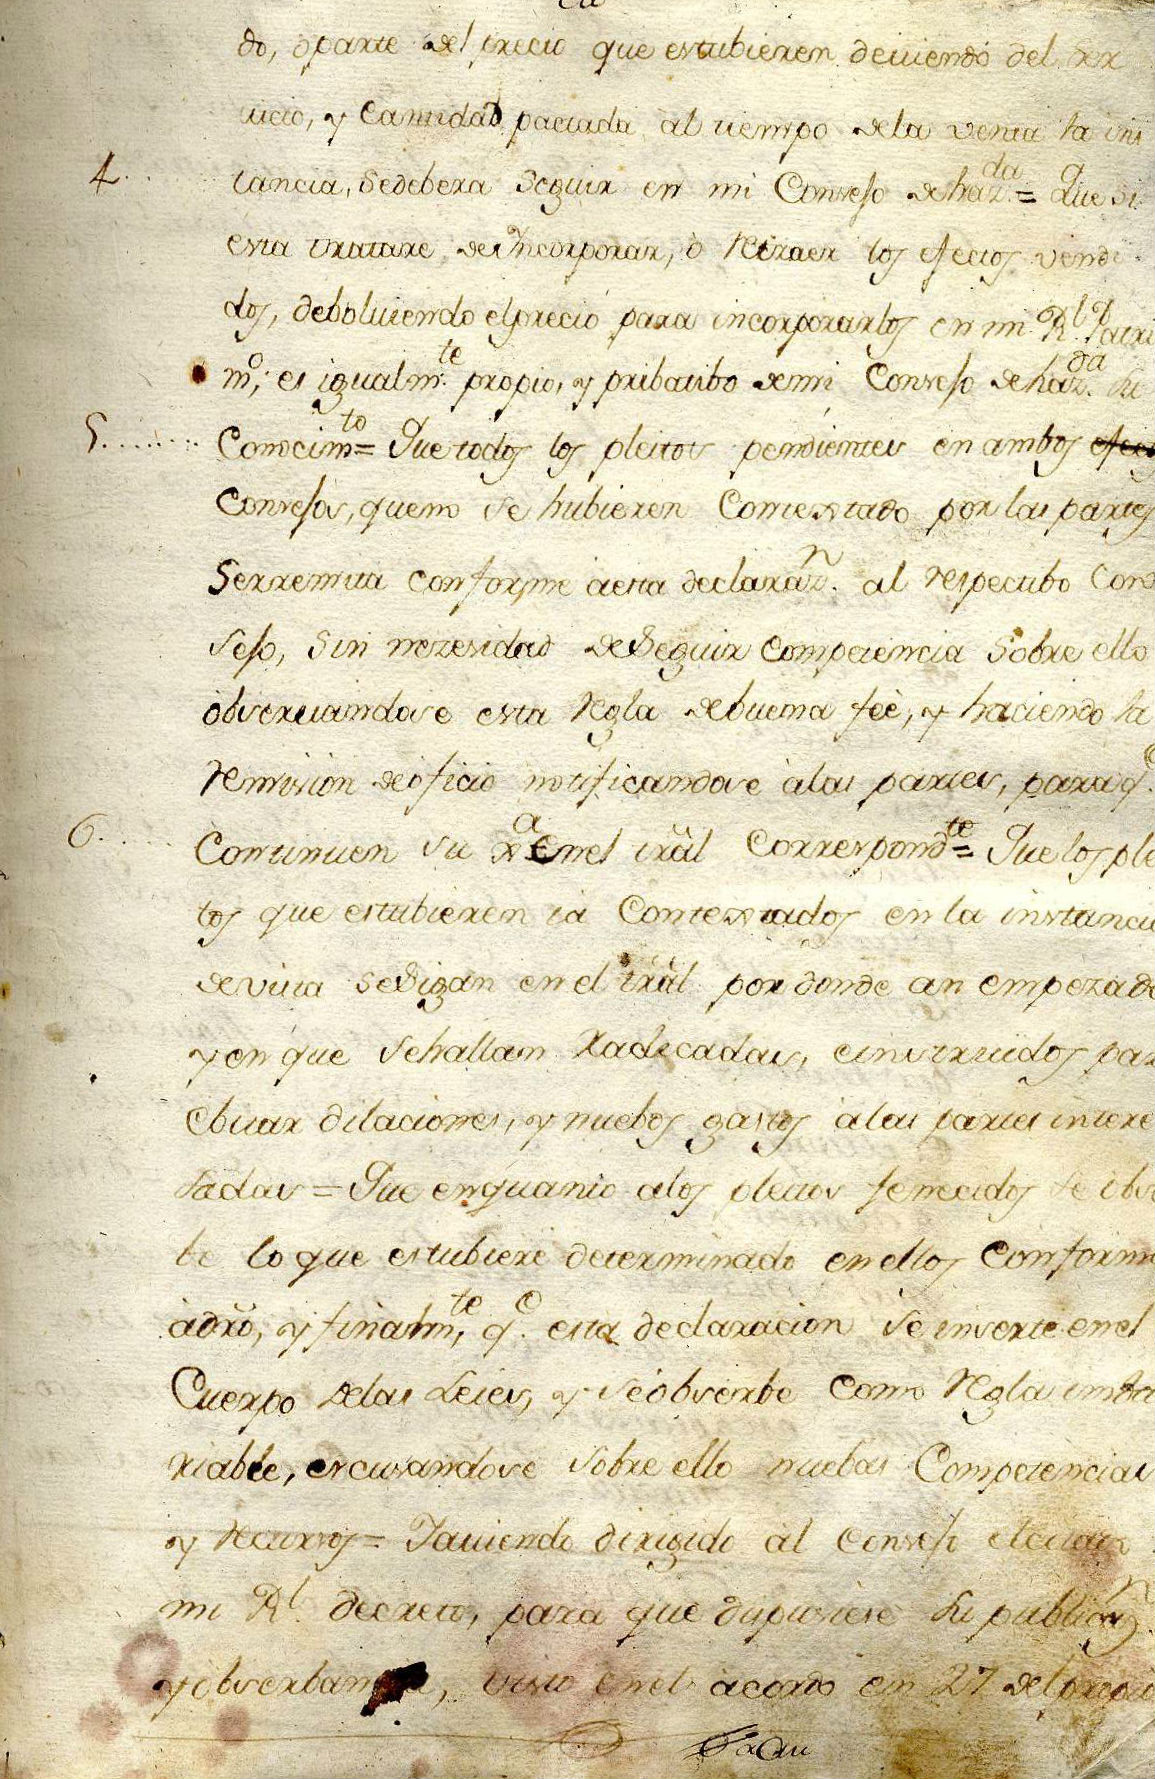 do, o parte del precio que estubieren deviendo del ser
uicio, y Cantidad pactada al tiempo dela venta la ins
4. tancia, sedebera seguir en mi Consejo de haz.da = Que si
esta tratare de Yncorporar, ò Retraer los efectos vendi
dos, debolviendo el precio para incorporarlos en mi R.l Patri
m.o; es igualm.te propio, y pribatibo de mi Consejo de haz.da su
5. Conocim.to = Que todos los pleitos pendientes en ambos efec
Consejos, que no se hubieren Contextado por las partes
Serremita conforme a esta declaraz.n al respectibo Con
sejo, Sin nezesidad de Seguir Competencia Sobre ello
observandose esta Regla de buena feè, y haciendo la
Remision de oficio notificandose à las partes, para q.e
6. Continuen su R.a en el trãl Correspond.te = Que los plei
tos que estubieren ia Contextados en la instancia
de vista se Sigan en el trãl por donde an empezado
y en que se hallan Radicadas, einstruidos par
ebitar dilaciones, y nuebos gastos à las partes intere
sadas = Que en quanto alos pleitos fenecidos se obser
be lo que estubiere determinado en ellos Conforme
à dro, y finalm.te q.e esta declaracion se inserte en el
Cuerpo delas Leies, y se obserbe Como Regla imba
riable, escusandose Sobre ello nuebas Competencias
y Recursos = Y auiendo dirigido al Consejo el citado
mi R.l decreto, para que dispusiese su public.n
y obserbancia, visto en el acordó en 27 del propio